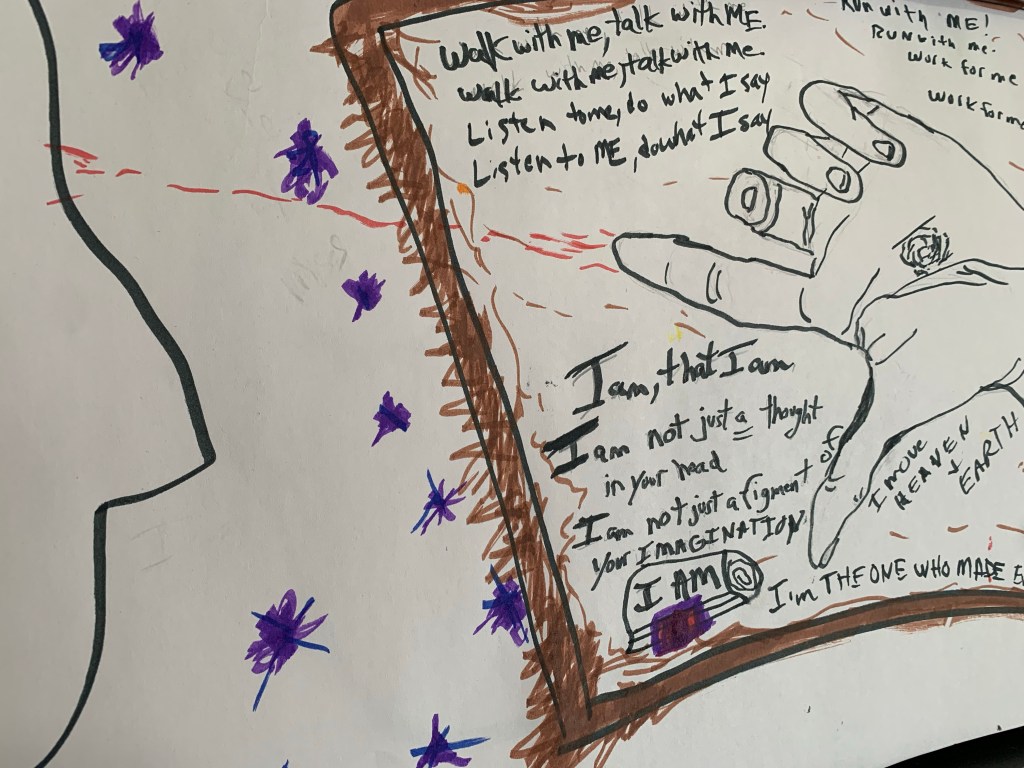 Walk with me, talk with ME.
Walk with me, talk with me.
Listen to me, do what I say
Listen to ME, do what I say
RUN with ME!
RUN with me!
Work for me
Work for me
I am, that I am
I am not just a thought
in your head
I am not just a figment of
your IMAGINATION
I AM
"I MOVE
HEAVEN
+
EARTH
I'm THE ONE WHO MADE